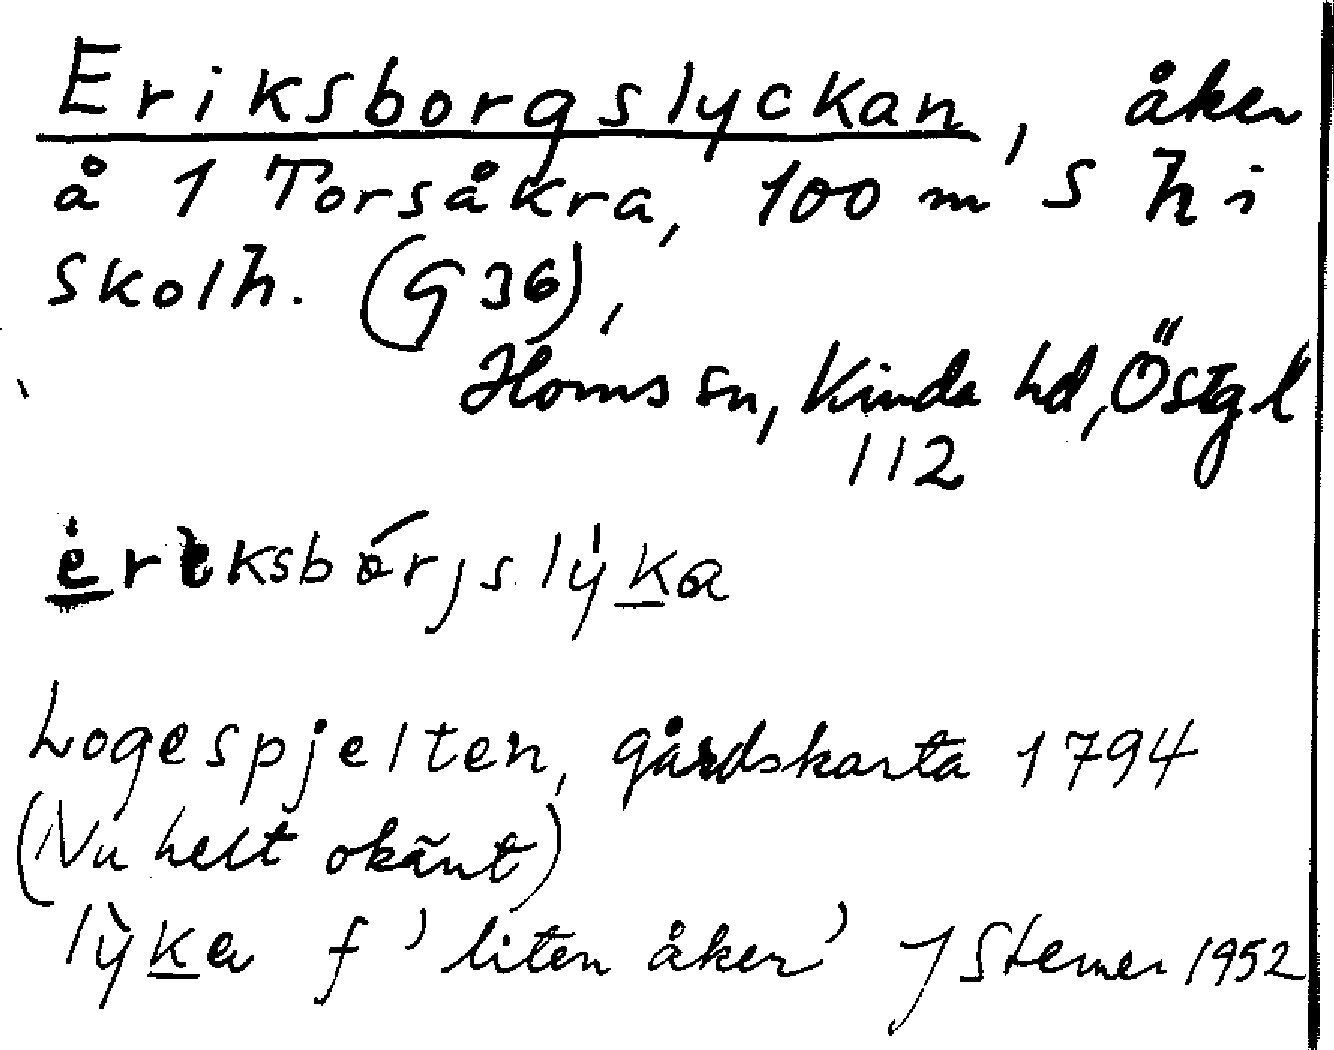 Eriksborgslyckan, åker
å 1 Torsåkra, 100 m S h i
skolh. (G 36),
Horns sn, Kinda hd, Östgl
112
ėrıksbǫ́rjslẏka
Logespjelten, gårdskarta 1794
(Nu helt okänt)
lỳka f 'liten åker' J Sterner 1952